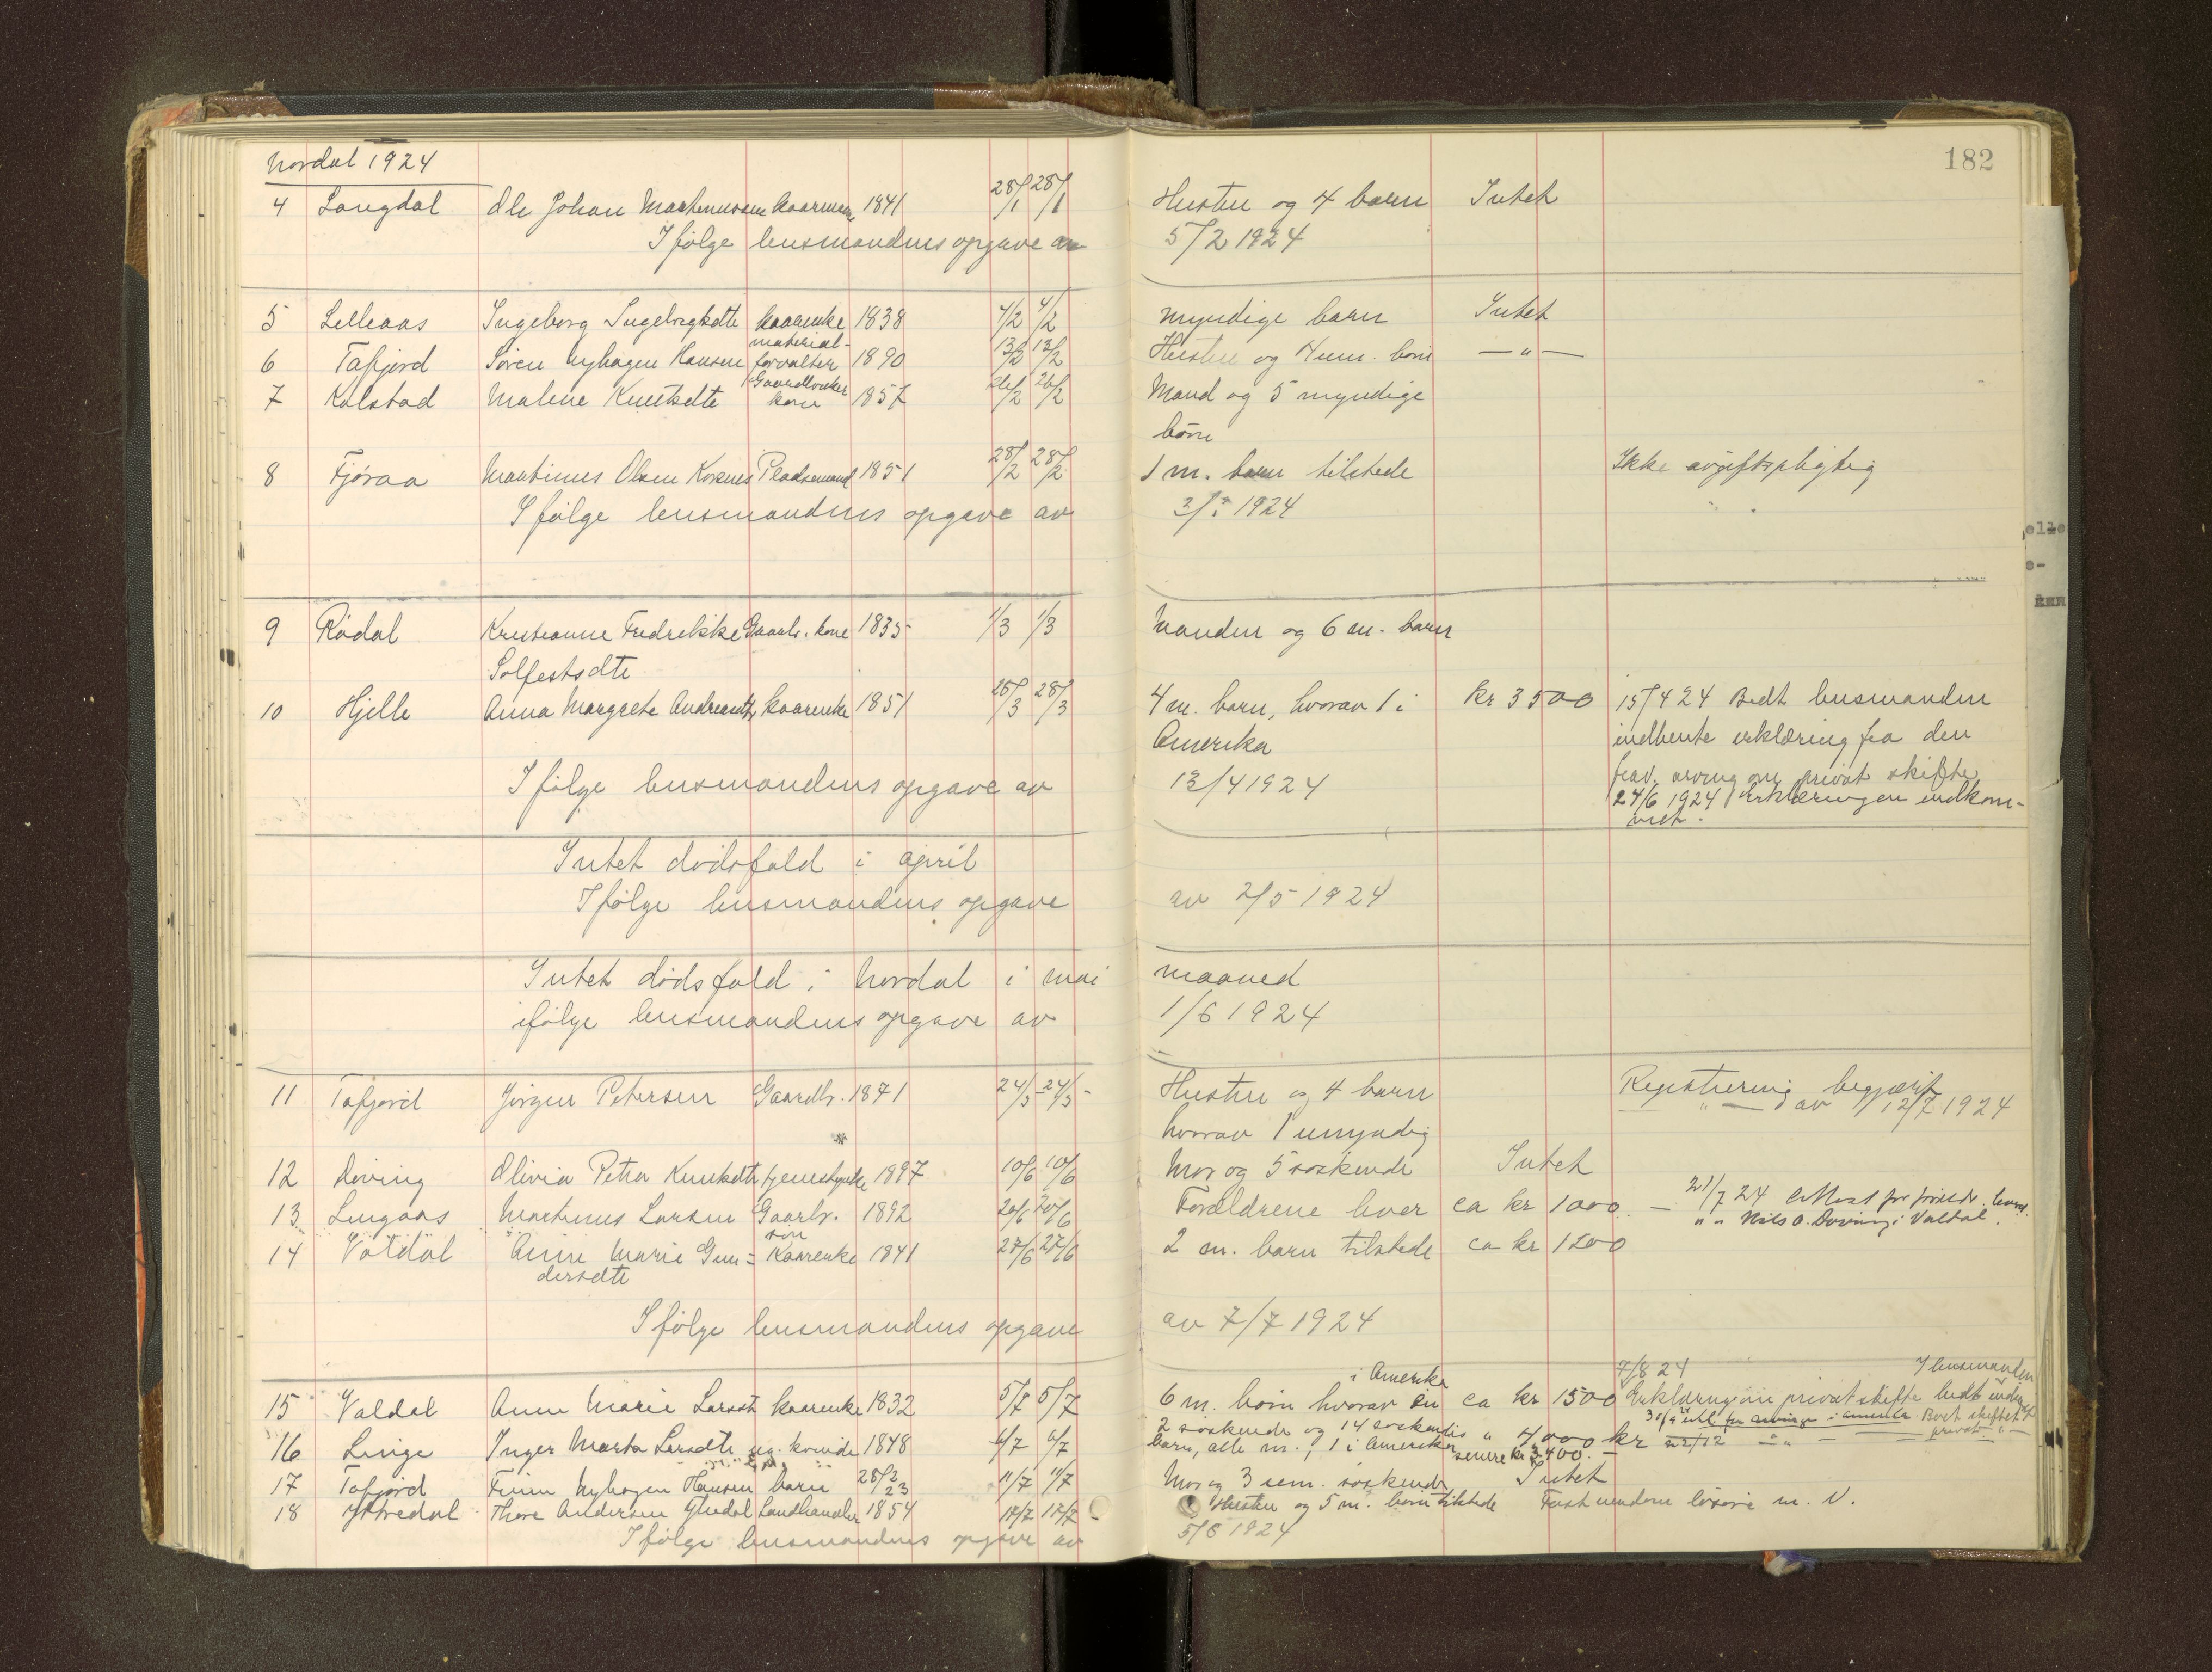 Nordal 1924
182
4 Langdal Ole Johan Martinussen kaarmand 1841 28/1 28/1 Hustru og 4 barn Intet
Ifølge lensmandens opgave av 5/2 1924
5 Lilleaas Ingeborg Ingebrigtsdtr kaarenke 1838 4/2 4/2 myndige barn Intet
6 Tafjord Søren Nyhagen Hansen material-forvalter 1890 13/2 13/2 Hustru og 4 um. børn — " —
7 Kolstad Malene Knutsdtr Gaardbruker kone 1857 26/2 26/2 Mand og 5 myndige
børn
8 Fjøraa Martinus Olsen Korsnes Pladsemand 1851 28/2 28/2 1 m. barn tilstede Ikke avgiftspligtig
Ifølge lensmandens opgave av 3/3 1924
9 Rødal Kristianne Fredrikke Gaardb. kone 1835 1/3 1/3 Manden og 6 m. barn
Solfestsdtr
10 Hjelle Anna Margrete Andreasdtr kaarenke 1851 28/3 28/3 4 m. barn, hvorav 1 i kr 3500 15/4 24 Bedt lensmanden
Amerika indhente erklæring fra den
Ifølge lensmandens opgave av 13/4 1924 frav. arving om privat skifte
24/6 1924 Erklæringen indkom-
met.
Intet dødsfald i april
Ifølge lensmandens opgave av 2/5 1924
Intet dødsfald i Nordal i mai maaned
ifølge lensmandens opgave av 1/6 1924
11 Tafjord Jørgen Petersen Gaardb. 1871 24/5 24/5 Hustru og 4 barn Registrering begjært
hvorav 1 umyndig " — av 12/7 1924
12 Døving Olivia Petra Knutsdtr tjenestepike 1897 10/6 10/6 Mor og 5 søskende Intet
13 Lingaas Martinus Larsen Gaardbr. søn 1892 20/6 20/6 Forældrene lever ca kr 1000. — 21/7 24 Attest for foreldr.
" " Nils O. Døving i Valdal.
14 Valdal Anne Marie Gun= Kaarenke 1841 27/6 27/6 2 m. barn tilstede ca kr 1200
dersdtr
Ifølge lensmandens opgave av 7/7 1924
15 Valdal Anne Marie Larsdt kaarenke 1832 5/7 5/7 6 m. børn hvorav en i Amerika ca kr 1500 7/8 24 Erklæring om privat skifte bedt lensmanden
16 Linge Inger Marta Larsdtr ug. kvinde 1848 6/7 6/7 2 søskende og 14 søskendes " 4000 kr
barn, alle m., 1 i Amerika senere kr 3400. —
17 Tafjord Finn Nyhagen Hansen barn 28/2 23 11/7 11/7 Mor og 3 um. søskende Intet
18 Yttredal Thore Andersen Ytredal Landhandler 1854 17/7 17/7 Hustru og 5 m. børn tilstede Fast eiendom løsøre m. v.
Ifølge lensmandens opgave av 5/8 1924